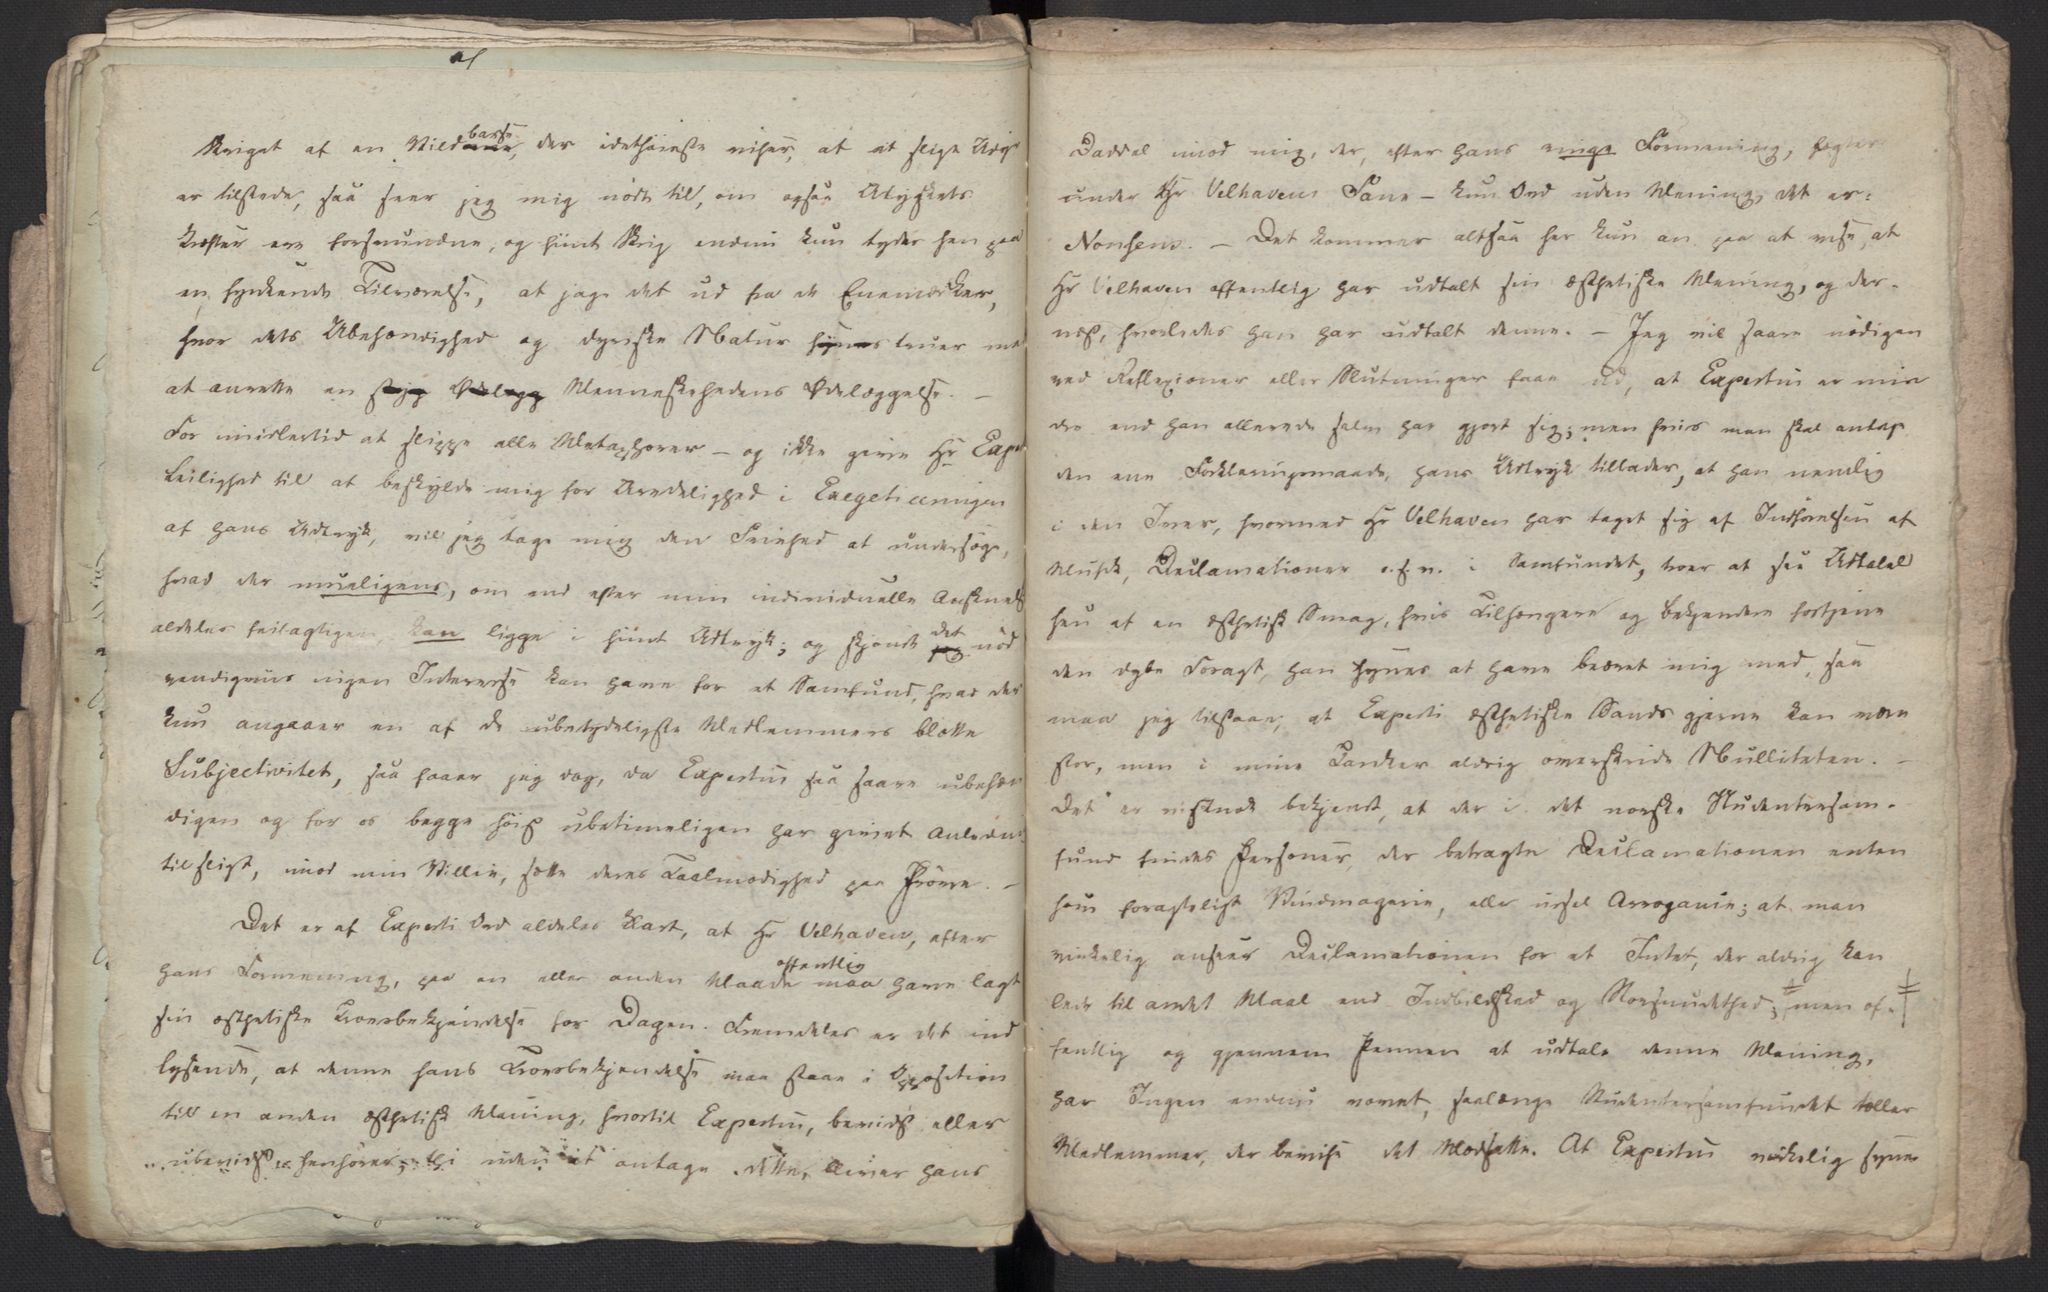 Skriget af en Vildbasse, der idethøieste viser, at et sligt
er tilstede, saa seer jeg mig nødt til, om ogsaa Udyrets
Kræfter ere forsvundne, og hiint Skrig endnu kun tyder hen paa
en synkende Tilværelse, at jage det ud fra de Enemærker,
hvor dets Ubehændighed og dyriske Natur synes truer med
at anrette en Menneskehedens Ødelæggelse. –
For imidlertid at slippe alle Metaphorer – og ikke give Hr
Leilighed til at beskylde mig for Uredelighed i Exegeticeringen
af hans Udtryk, vil jeg tage mig den Friehed at undersøge,
hvad der mueligens, om end efter min individuelle
aldeles feilagtigen, kan ligge i hiint Udtryk; og skjøndt det nød
vendigviis ingen Interesse kan have for et Samfund, hvad der
kun angaaer en af de ubetydeligste Medlemmers blotte
Subjectivitet, saa faaer jeg dog, da Expertus saa saare ubehæn
digen og for os begge høist ubetimeligen har givet Anledn
til sligt, imod min Villie, sætte deres Taalmodighed paa Prøve. –
Det er af Experti Ord aldeles klart, at Hr Velhaven, efter
hans Formening, paa en eller anden Maade offentlig maa have lagt
sin æsthetiske Troesbekjendelse for Dagen. Fremdeles er det ind
lysende, at denne hans Troesbekjendelse maa staae i Opposition
til en anden æsthetisk Mening, hvortil Expertus, beviist eller
ubeviist henhører; thi uden at antage dette, bliver hans
Daddel imod mig, der, efter hans ringe Formening, fegter
under Hr Velhavens Fane – kun Ord uden Mening, det er:
Nonsens. – Det kommer altsaa her kun an paa at vise, at
Hr Velhaven offentlig har udtalt sin æsthetiske Mening, og der-
næst, hvorledes han har udtalt denne. – Jeg vil saare nødigen
ved Reflexioner eller Slutninger faae ud, at Expertus er min
dre end han allerede selv har gjort sig; men hvis man skal antage
den ene Forklaringsmaade, hans Udtryk tillader, at han nemlig
i den Iver, hvormed Hr Velhaven har taget sig af Indførelsen af
Musik, Declamationer o.s.v. i Samfundet, troer at see Udtalel
sen af en æsthetisk Smag, hvis Tilhængere og Bekjendere fortjene
den dybe Foragt, han synes at have beæret mig med, saa
maa jeg tilstaae, at Experti æsthetiske Sands gjerne kan være
stor, men i mine Tanker aldrig overskride Nulliteten. –
Det er vistnok bekjendt, at der i det norske Studentersam-
fund findes Personer, der betragte Declamationen enten
som foragteligt Vindmagerie, eller ussel Arrogance; at man
virkelig anseer Declamationen for et Intet, der aldrig kan
lede til andet Maal end Indbildskhed og Næsviished; men of-
fentlig og gjennem Pennen at udtale denne Mening,
har Ingen endnu vovet, saalænge Studentersamfundet tæller
Medlemmer, der bevise det Modsatte. At Expertus virkelig synes